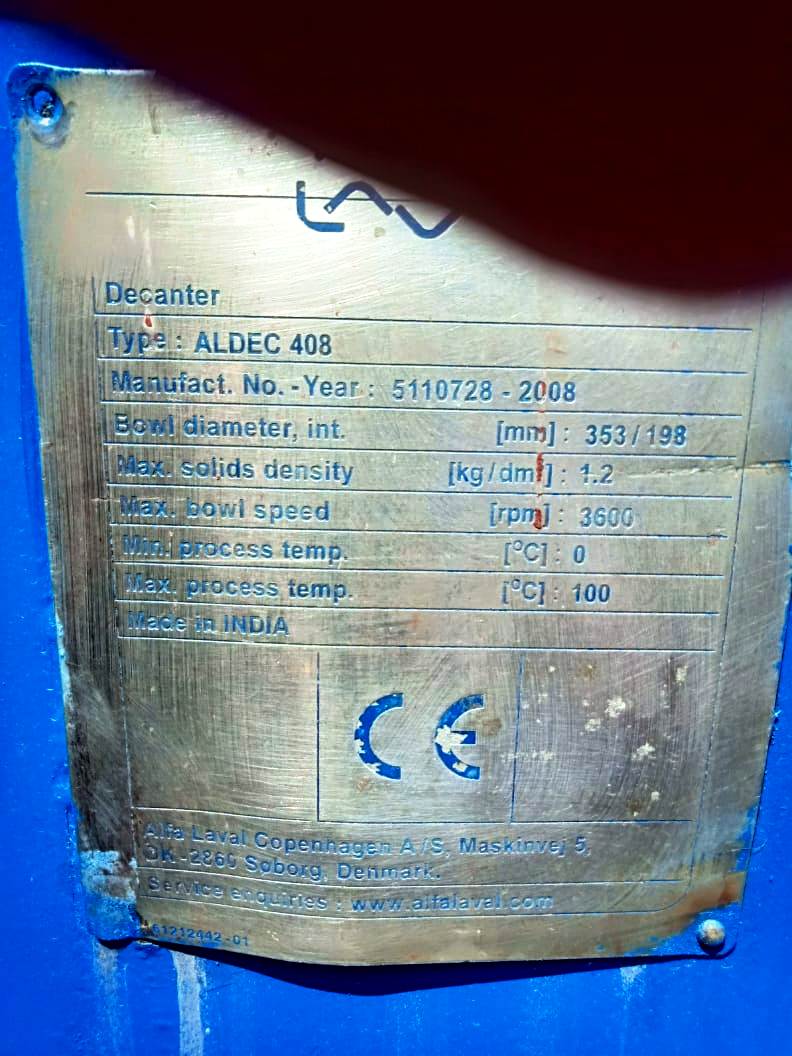 LAV
Decanter
Type : ALDEC 408
Manufact. No. - Year : 5110728 - 2008
Bowl diameter, int. [mm] : 353 / 198
Max. solids density [kg/dm³] : 1.2
Max. bowl speed [rpm] : 3600
Min. process temp. [°C] : 0
Max. process temp. [°C] : 100
Made in INDIA
CE
Alfa Laval Copenhagen A/S, Maskinvej 5,
DK-2860 Soborg, Denmark.
Service enquiries : www.alfalaval.com
61212442-01